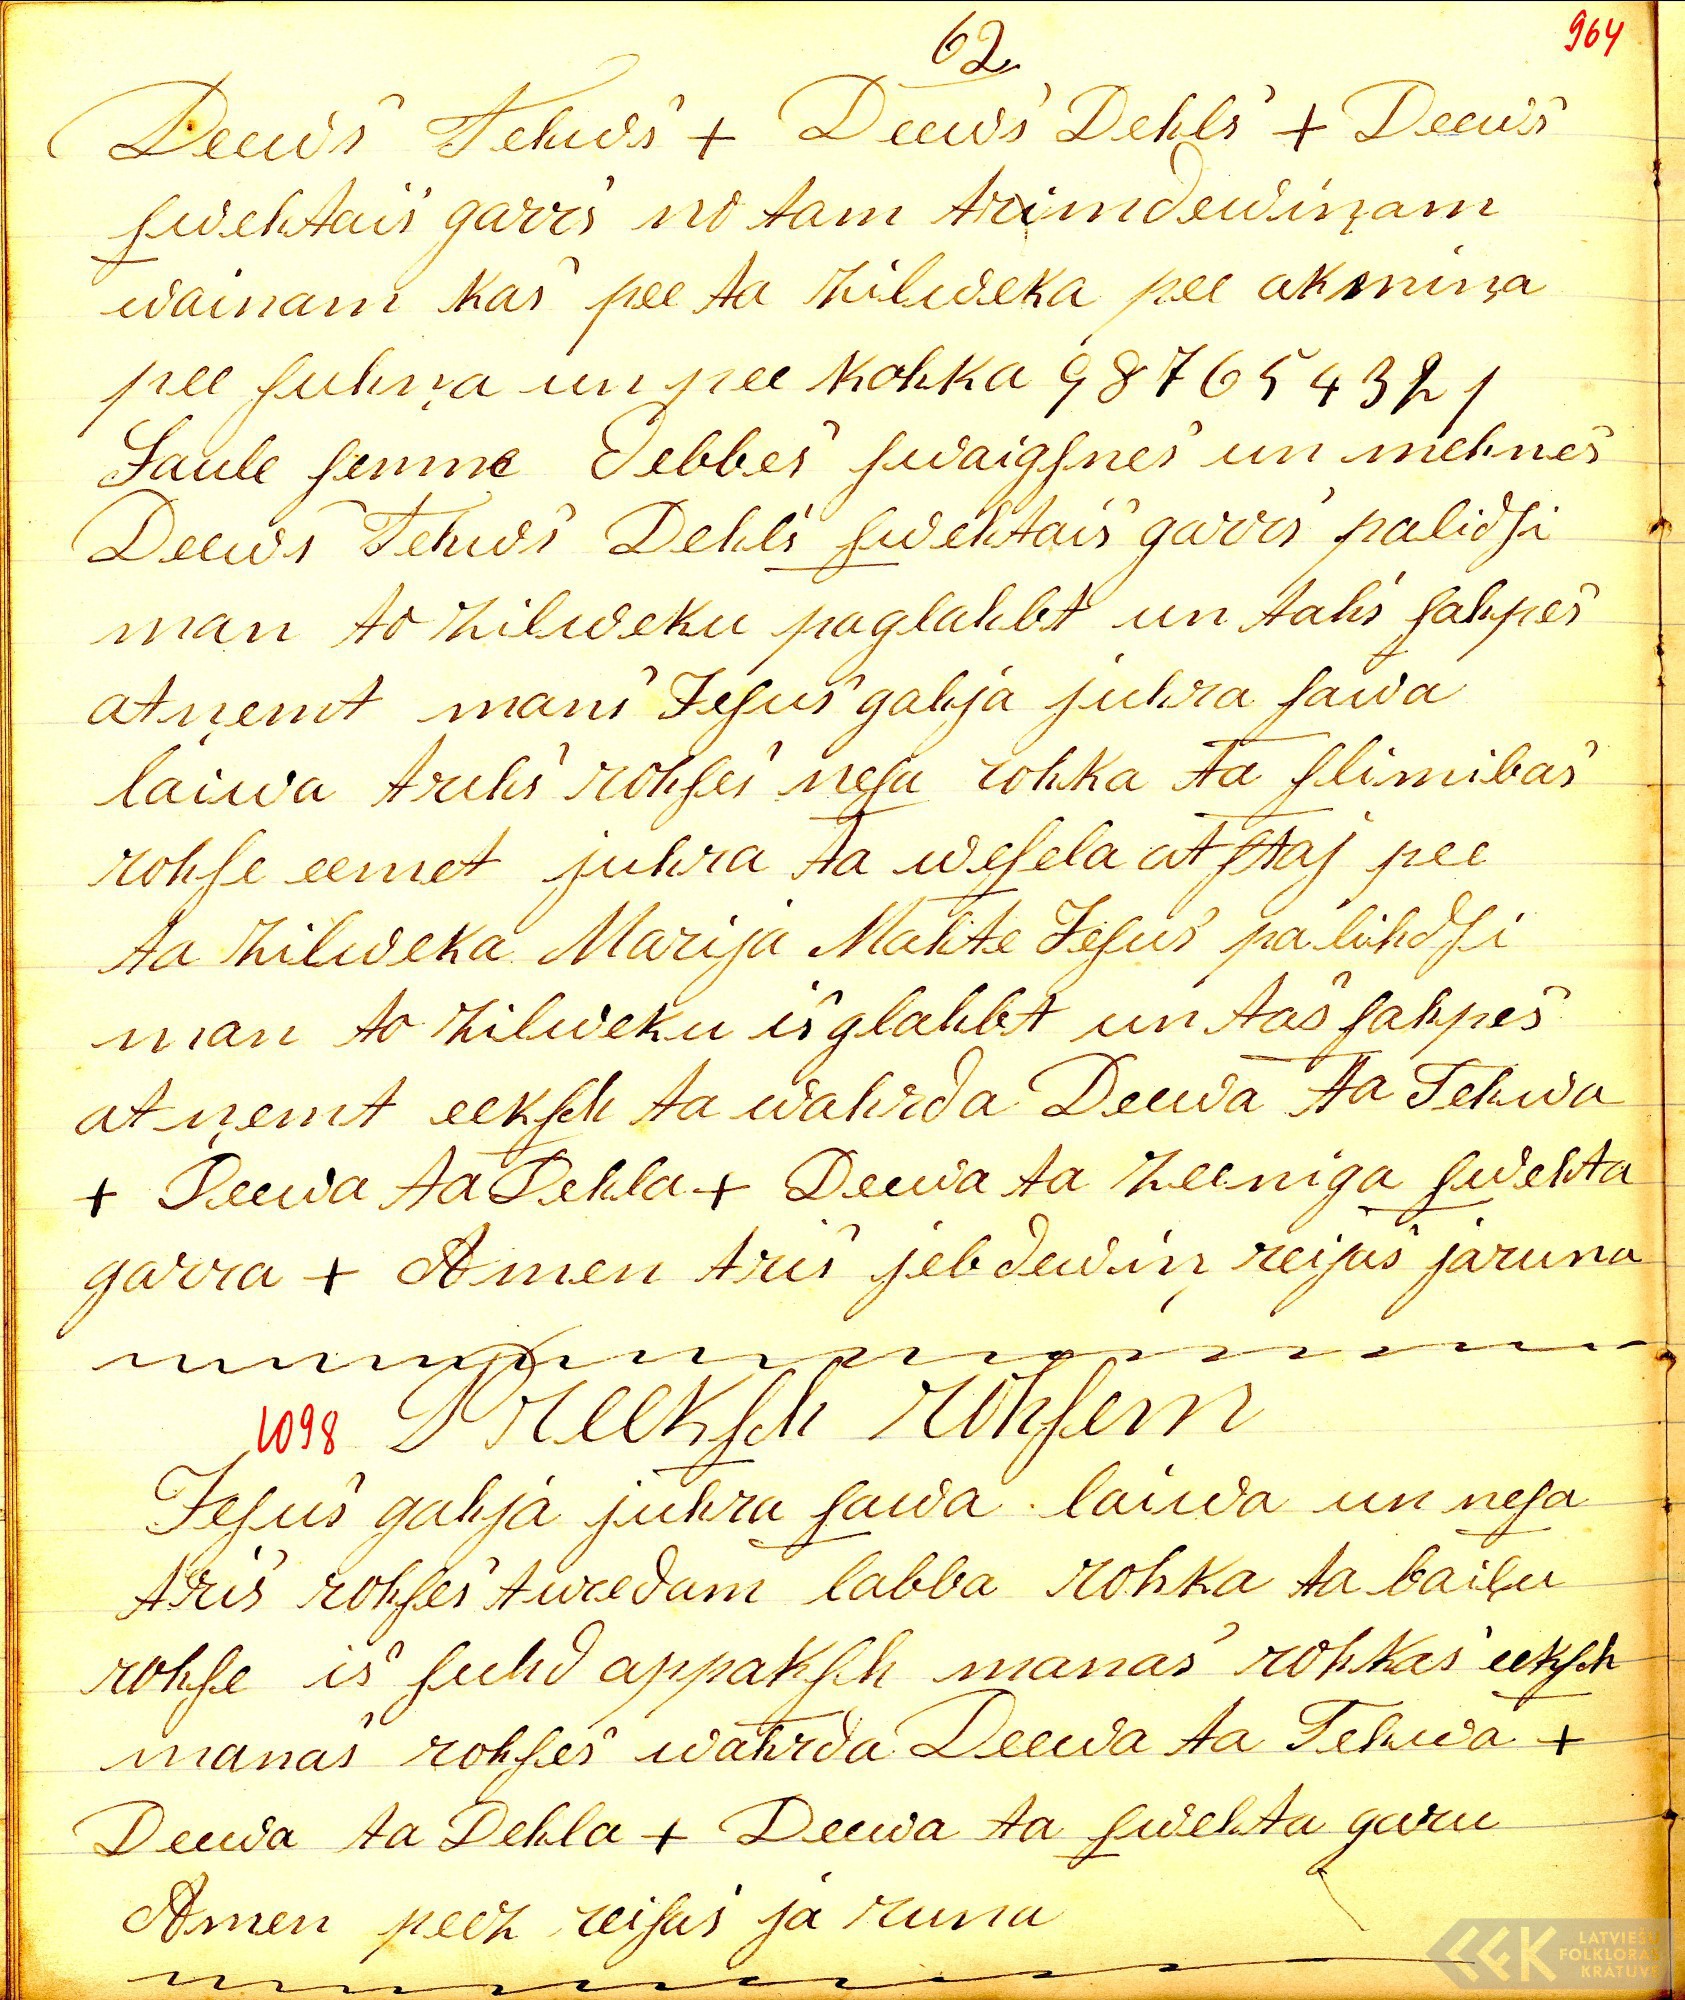 62
964
Deews Tehws + Deews Dehls + Deews
ſwehtais garrs no tam trimdewiņam
wainam kas pee ta zilweka pee akmiņa
pee ſuhņa un pee kohka 987654321
Saule ſemme Debbes ſwaigſnes un mehnes
Deews Tehws Dehls ſwehtais garrs palidſi
man to zilweku paglahbt un tahs ſahpes
atņemt mans Jeſus gahja juhra ſawa
laiwa truhs rohſes neſa rohka ta ſlimibas
rohſe eemet juhra ta weſela atſtaj pee
ta zilweka Marija Mahte Jeſus palihdſi
man to zilweku isglahbt un tas ſahpes
atņemt eekſch ta wahrda Deewa ta Tehwa
+ Deewa ta Dehla + Deewa ta zeeniga ſwehta
garra + Amen tris jeb dewiņ reijas jaruna
1098 Preekſch rohſem
Jeſus gahja juhra ſawa laiwa un neſa
tris rohſes turedam labba rohka ta baiļu
rohſe is ſuhd appakſch manas rohkas eekſch
manas rohſes wahrda Deewa ta Tehwa +
Deewa ta Dehla + Deewa ta ſwehta garu
Amen peez reiſas ja runa
LATVIEŠU
FOLKLORAS
KRĀTUVE